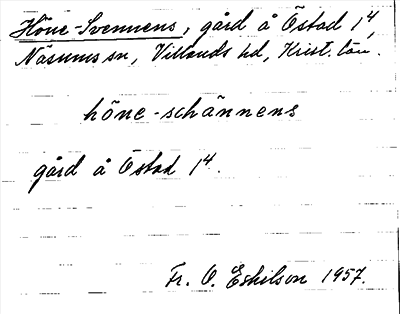 Höne-Svennens, gård å Östad 1⁴,
Näsums sn, Villands hd, Krist. län.
höne-schännens
gård å Östad 1⁴.
Fr. O. Eskilson 1957.